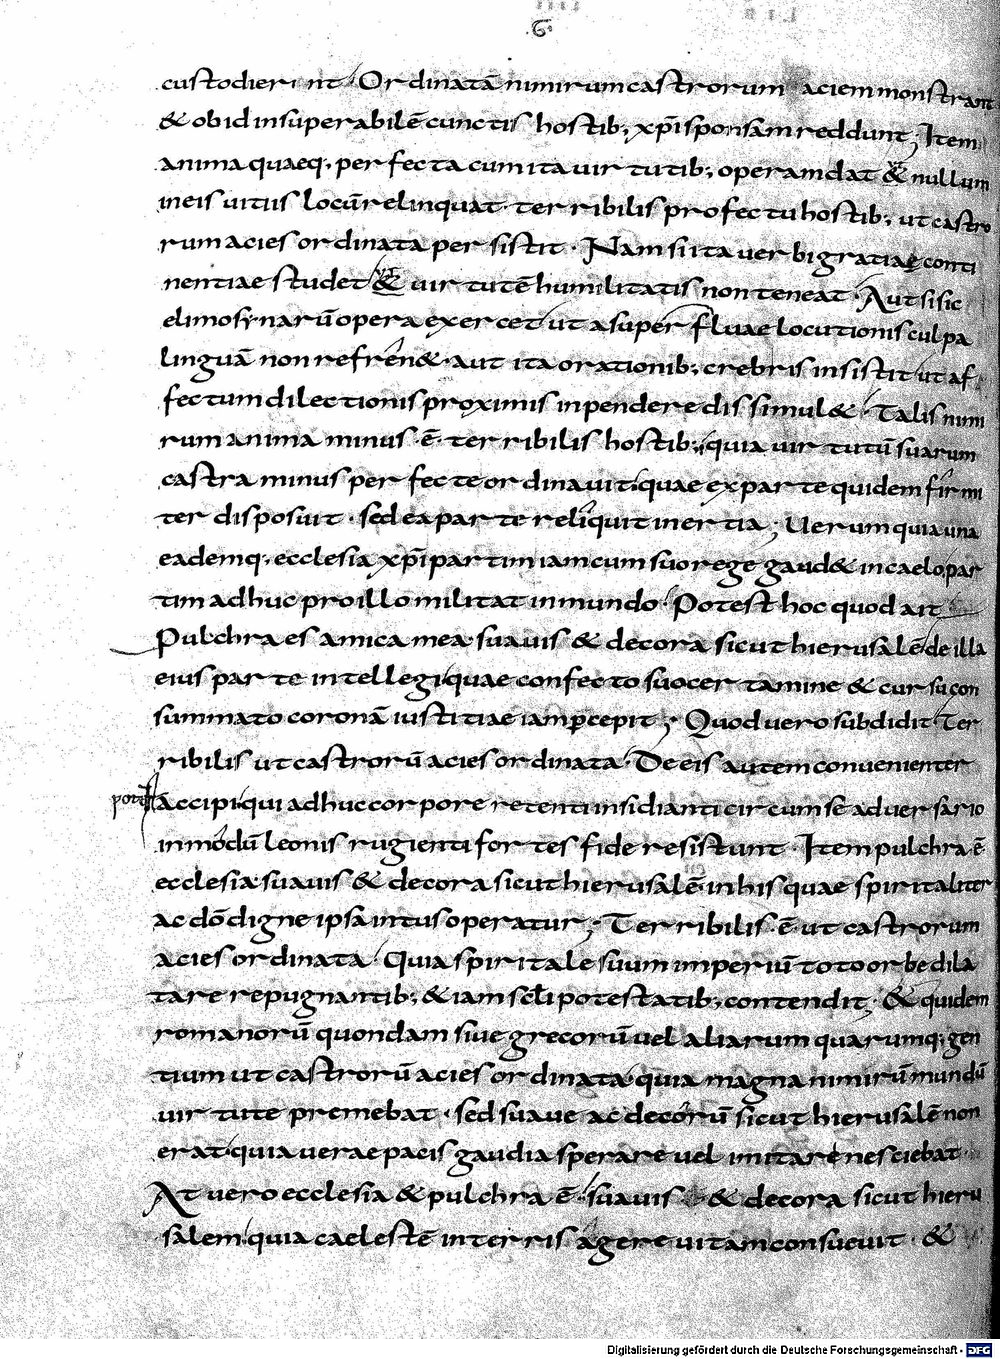 G
custodierint. Ordinatā nimirum castrorum aciem monstrant
& ob id insuperabilē cunctis hostib; xp̄i sponsam reddunt; Item
anima quaeq. perfecta cum ita uirtutib; operam dat & nullum
in eis uitiis locū relinquat. terribilis profectu hostib; ut castro
rum acies ordinata persistit. Nam si ita uerbi gratiae conti
nentiae studet & uirtutē humilitatis non teneat. Aut si sic
elimosynarū opera exercet ut a superfluae locutionis culpa
linguā non refren&. aut ita orationib; crebris insistit ut af
fectum dilectionis proximis inpendere dissimul&. Talis nimi
rum anima minus ē terribilis hostib; quia uirtutū suarum
castra minus perfecte ordinauit. quae ex parte quidem firmi
ter disposuit. sed ea parte reliquit inertia; Uerum quia una
eademq. ecclesia xp̄i partim iam cum suo rege gaud& in caelo. par
tim adhuc pro illo militat in mundo. Potest hoc quod ait
Pulchra es amica mea suauis & decora sicut hierusalē. de illa
eius parte intellegi. quae confecto suo certamine & cursu con
summato coronā iustitiae iam pcepit; Quod uero subdidit Ter
ribilis ut castrorū acies ordinata. De eis autem conuenienter
potest accipi. qui adhuc corpore retenti insidianti circum se aduersario
in modū leonis rugienti fortes fide resistunt. Item pulchra ē
ecclesia. suauis & decora sicut hierusalē. in his quae spiritaliter
ac dō digne ipsa intus operatur; Terribilis ē ut castrorum
acies ordinata. Quia spiritale suum imperiū toto orbe dila
tare repugnantib; etiam scl̄i potestatib; contendit; & quidem
romanorū quondam siue grecorū uel aliarum quarumq; gen
tium ut castrorū acies ordinata. quia magna nimirū mundū
uirtute premebat. sed suaue ac decorū sicut hierusalē non
erat. quia uerae pacis gaudia sperare uel imitare nesciebat.
At uero ecclesia & pulchra ē. suauis & decora sicut hieru
salem. quia caelestē in terris agere uitam consueuit. &
Digitalisierung gefördert durch die Deutsche Forschungsgemeinschaft - DFG